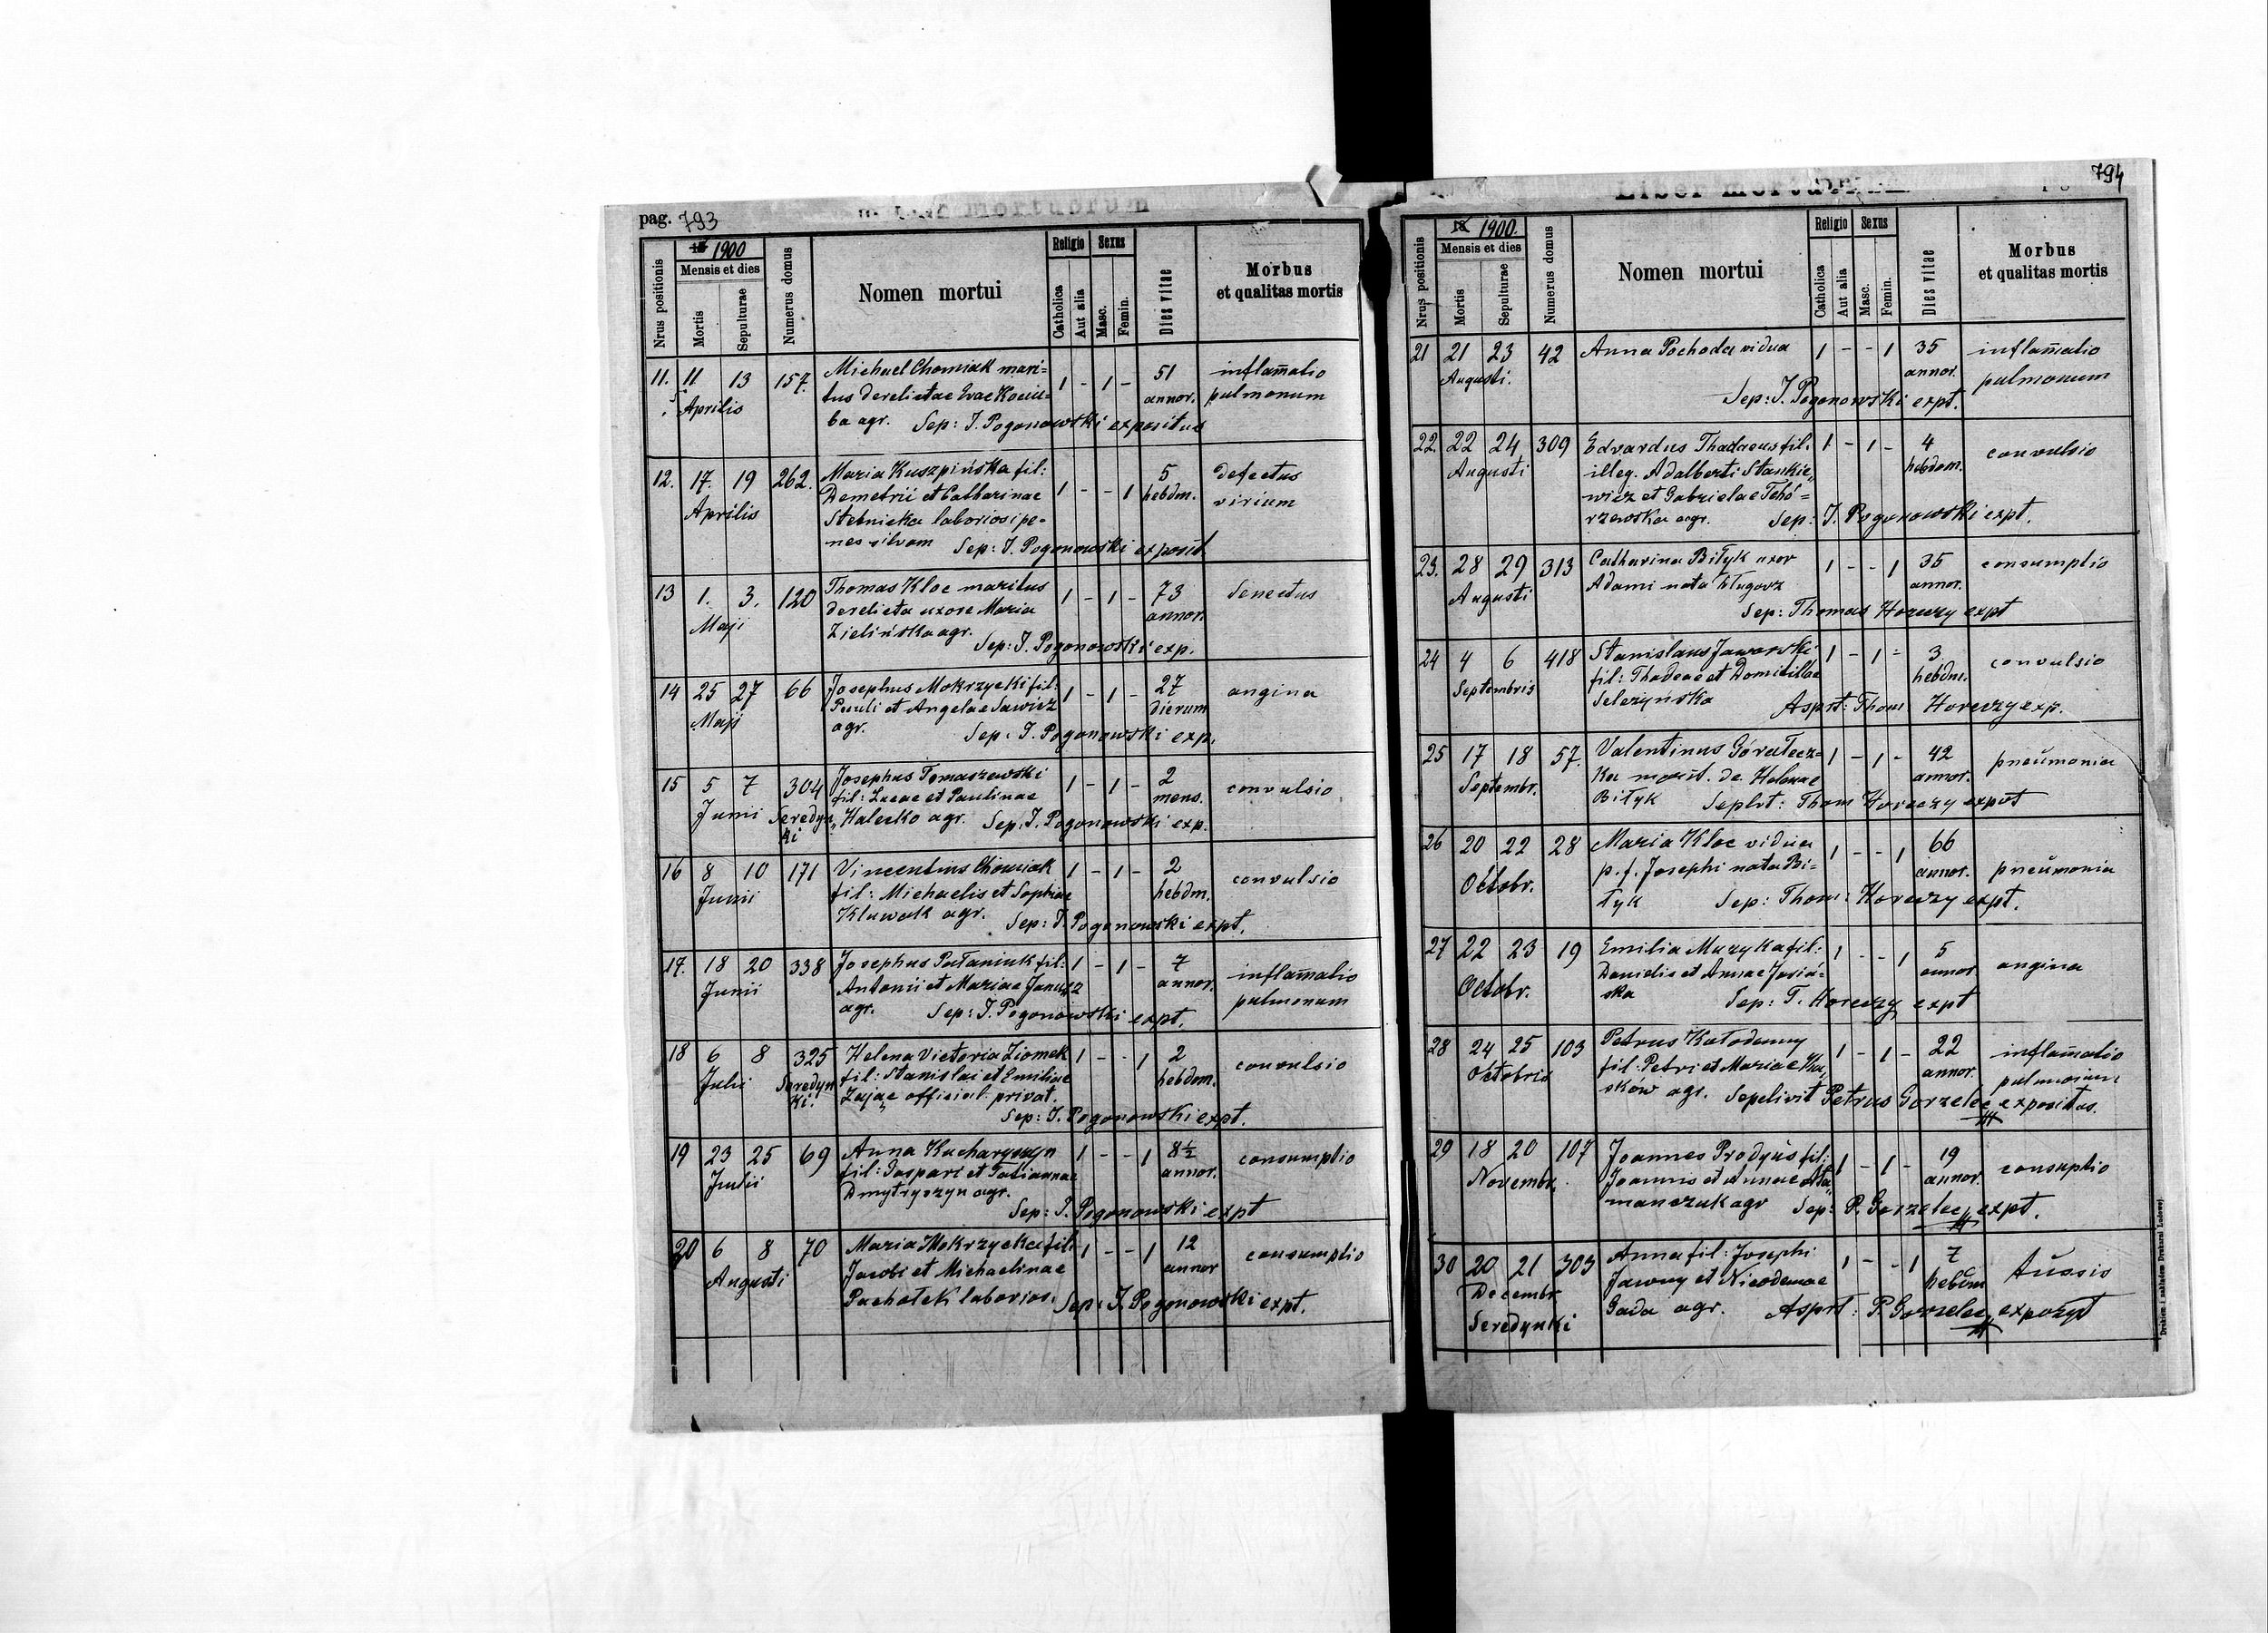 pag. 793
Liber mortuorum
1900
Religio Sexus
Mensis et dies
Nrus positionis
Mortis
Sepulturae
Numerus domus
Nomen mortui
Catholica
Aut alia
Masc.
Femin.
Dies vitae
Morbus
et qualitas mortis
11. 11 13 157. Michael Chomiak mari= 1 - 1 - 51 inflam̄atio
Aprilis tus derelictae Evae annor. pulmonum
ba agr. Sep: J. Pogonowski expositus
12. 17. 19 262. Maria Kuszpińska fil: 1 - - 1 5 defectus
Aprilis Demetrii et Catharinae hebdm. virium
Stebnicka laboriosi pe=
nes silvam Sep: J. Pogonowski exposit
13 1. 3. 120 Thomas Kloc maritus 1 - 1 - 73 Senectus
Maji derelicta uxore Maria annor.
Zielińska agr. Sep: J. Pogonowski exp.
14 25 27 66 Josephus Mokrzycki fil: 1 - 1 - 27 angina
Maji Pauli et Angelae Sawicz dierum
agr. Sep: J. Pogonowski exp.
15 5 7 304 Josephus Tomaszewski 1 - 1 - 2 convulsio
Junii Seredyn fil: Lucae et Paulinae mens.
ki Halecko agr. Sep. J. Pogonowski exp.
16 8 10 171 Vincentius Chomiak 1 - 1 - 2 convulsio
Junii fil: Michaelis et Sophiae hebdm.
Kluwak agr. Sep: J. Pogonowski expt.
17. 18 20 338 Josephus Pataniuk fil: 1 - 1 - 7 inflam̄atio
Junii Antonii et Mariae Janusz annor. pulmonum
agr. Sep: J. Pogonowski expt.
18 6 8 325 Helena Victoria Ziomek 1 - - 1 2 convulsio
Julii Seredyn fil: Stanislai et Emiliae hebdom.
ki. Zając official. privat.
Sep: J. Pogonowski expt.
19 23 25 69 Anna Kucharyszyn 1 - - 1 8½ consumptio
Julii fil: Gaspari et Tatiannae annor.
Dmytryszyn agr.
Sep: J. Pogonowski expt
20 6 8 70 Maria Mokrzycka fil: 1 - - 1 12 consumptio
Augusti Jacobi et Michaelinae annor
Pachołek laborios. Sep: J. Pogonowski expt.
794
Liber mortuorum
1900.
Religio Sexus
Mensis et dies
Nrus positionis
Mortis
Sepulturae
Numerus domus
Nomen mortui
Catholica
Aut alia
Masc.
Femin.
Dies vitae
Morbus
et qualitas mortis
21 21 23 42 Anna Pochoda vidua 1 - - 1 35 inflam̄atio
Augusti. annor. pulmonum
Sep: J. Pogonowski expt.
22. 22 24 309 Edvardus Thadaeus fil. 1 - 1 - 4 convulsio
Augusti illeg. Adalberti Stankie= hebdom.
wicz et Gabrielae Tchó=
rzewska agr. Sep: J. Pogonowski expt.
23. 28 29 313 Catharina Bityk uxor 1 - - 1 35 consumptio
Augusti Adami nata annor.
Sep: Thomas Horeczy expt
24 4 6 418 Stanislaus Jaworski 1 - 1 - 3 convulsio
Septembris fil: Thadeae et Domicillae hebdm.
Selezyńska Asprt: Thom Horeczy exp.
25 17 18 57. Valentinus Górałecz= 1 - 1 - 42 pneŭmonia
Septembr. ka marit. de Helenae annor.
Bityk Seplvt: Thom Horeczy expot
26 20 22 28 Maria Kloc vidua 1 - - 1 66 pneŭmonia
Octobr. p. f. Josephi nata Bi= annor.
tyk Sep: Thom: Horeczy expt.
27 22 23 19 Emilia Muzyka fil: 1 - - 1 5 angina
Octobr. Danielis et Annae Jasiń= annor
ska Sep: T. Horeczy expt
28 24 25 103 Petrus Kołodanny 1 - 1 - 22 inflam̄atio
Octobris fil: Petri et Mariae annor. pulmonum
sków agr. Sepelivit Petrus Gorzelec expositus.
29 18 20 107 Joannes Prodyŭs fil: 1 - 1 - 19 consuptio
Novembr. Joannis et Annae Ata= annor.
manczuk agr Sep: P. Gorzelec, expt.
30 20 21 303 Anna fil: Josephi 1 - - 1 7 tŭssis
Decembr Jawny et Nicodemae hebdm
Seredynki Gada agr. Asprt: P. Gorzelec, expozyt
Drukiem i nakładem Drukarni Ludowej